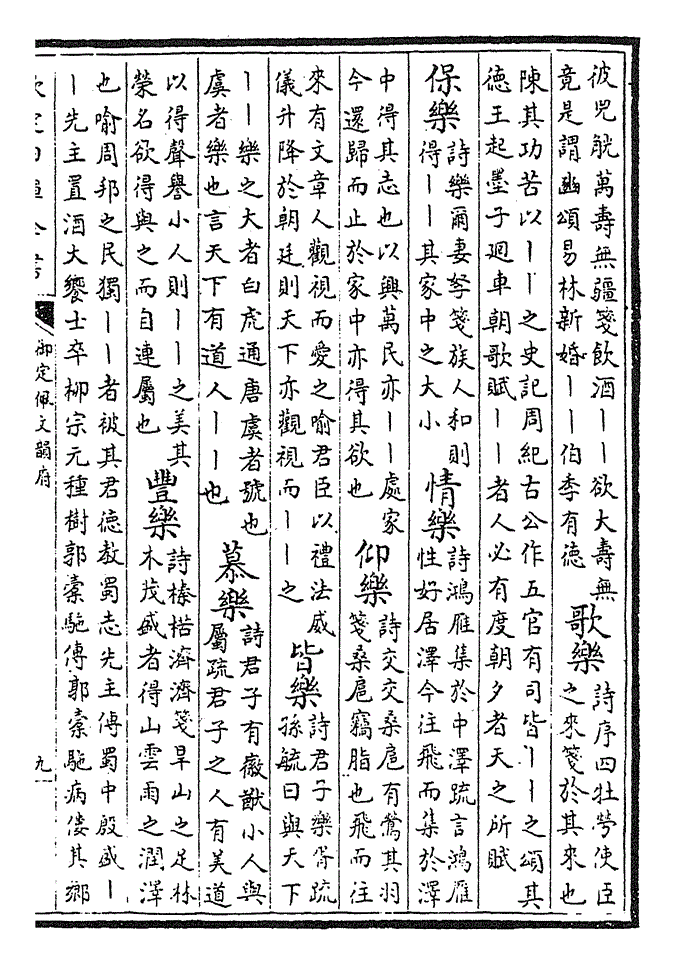 彼兕觥萬壽無疆箋飲酒丨丨欲大壽無
竟是謂豳頌易林新婚丨丨伯季有德
歌樂
詩序四牡勞使臣
之來箋於其來也
陳其功苦以丨丨之史記周紀古公作五官有司皆丨丨之頌其
德王起墨子廻車朝歌賦丨丨者人必有度朝夕者天之所賦
保樂
詩樂爾妻孥箋族人和則
得丨丨其家中之大小
情樂
詩鴻雁集於中澤疏言鴻雁
性好居澤今往飛而集於澤
中得其志也以興萬民亦丨丨處家
今還歸而止於家中亦得其欲也
仰樂
詩交交桑扈有鶯其羽
箋桑扈竊脂也飛而往
來有文章人觀視而愛之喻君臣以禮法威
儀升降於朝廷則天下亦觀視而丨丨之
皆樂
詩君子樂胥疏
孫毓曰與天下
丨丨樂之大者白虎通唐虞者號也
虞者樂也言天下有道人丨丨也
慕樂
詩君子有徽猷小人與
屬疏君子之人有美道
以得聲譽小人則丨丨之美其
榮名欲得與之而自連屬也
豐樂
詩榛楛濟濟箋旱山之足林
木茂盛者得山雲雨之潤澤
也喻周邦之民獨丨丨者被其君德教蜀志先主傳蜀中殷盛丨
丨先主置酒大饗士卒柳宗元種樹郭橐駞傳郭橐駞病僂其鄉
欽定四庫全書
御定佩文韻府
九